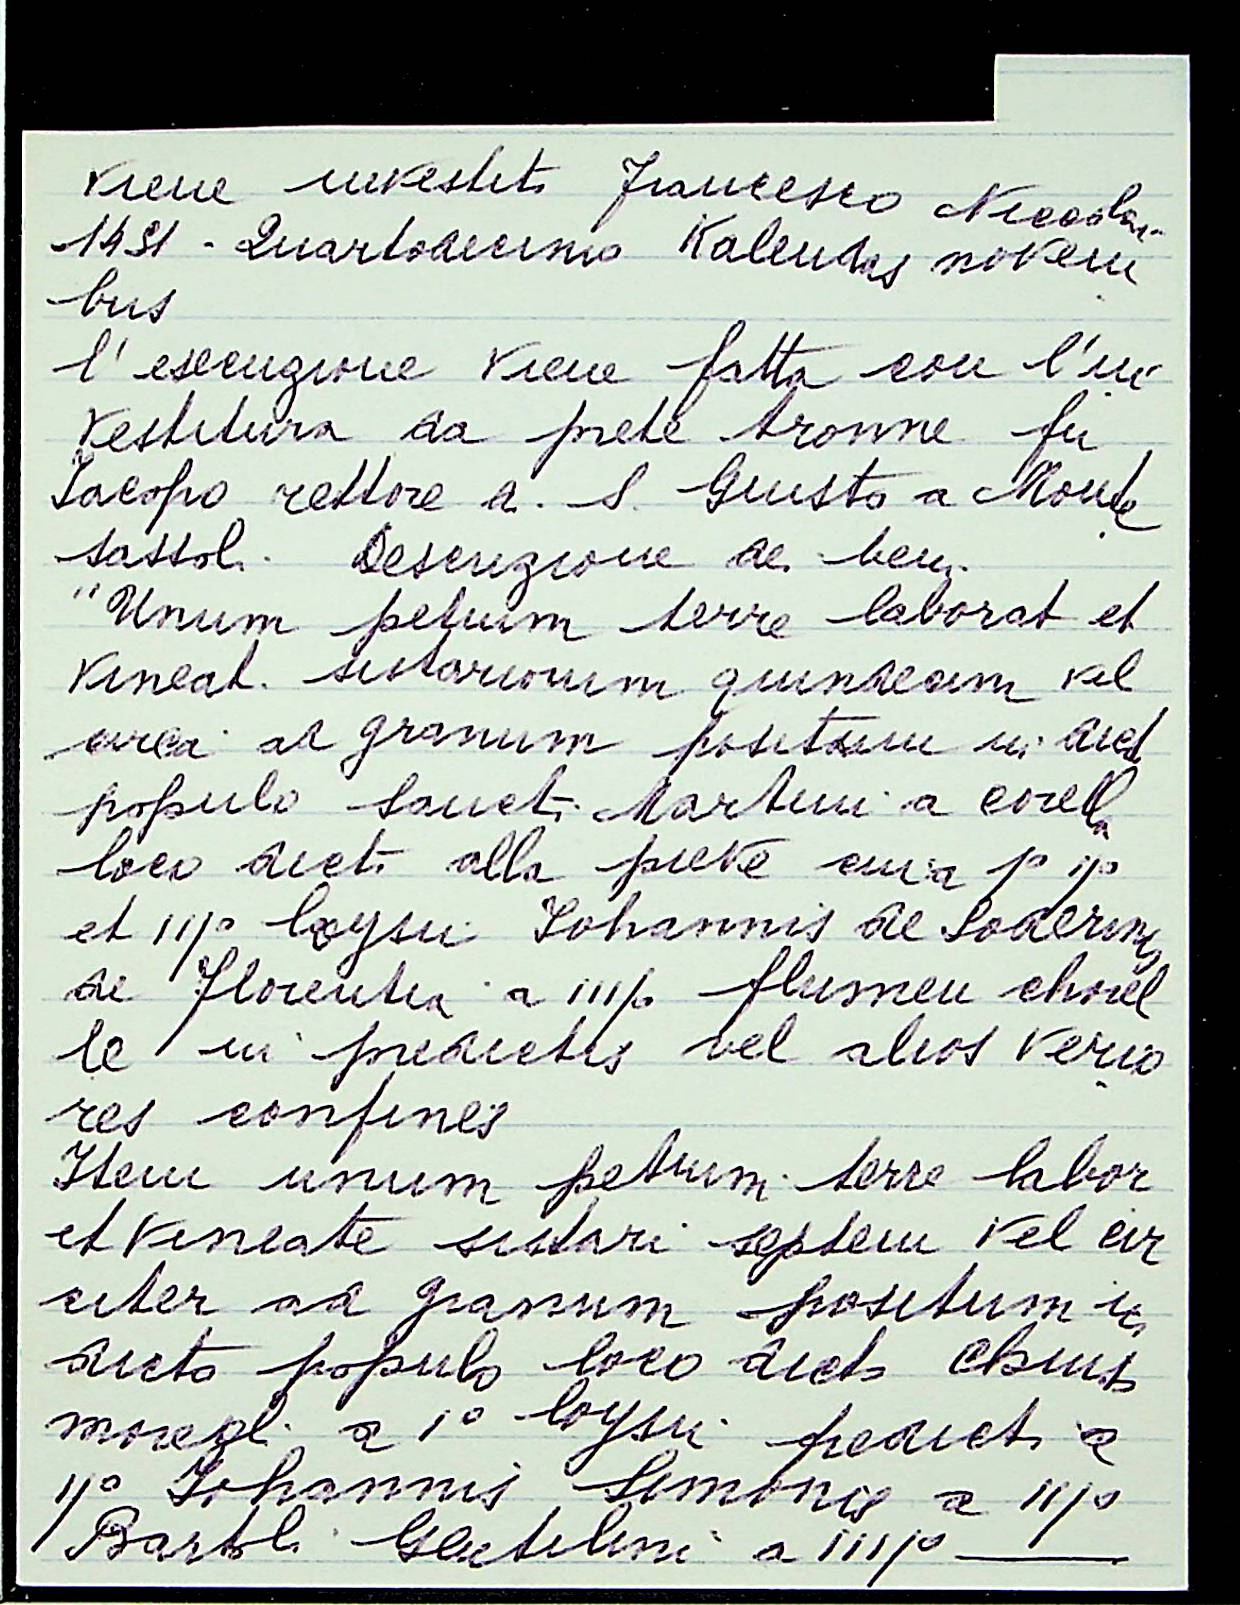 viene investito Francesco Niccolai
1491 - Quartodecimo Kalendas novem
bus
l'esecuzione viene fatta con l'in
vestitura da prete fu
Iacopo rettore di S. Giusto a Monte
sassoli. Descrizione dei beni.
"Unum petium terre laborat et
vineat. sistariorum quindecim vel
circa ad granum positum in dict
populo Sancti Martini a corella
loco dicto alla pieve cui a p° ij°
et iij° loysii Iohannis de Soderinis
de Florentia a iiij° flumen chorel
le in predictis vel alios verio
res confines
Item unum petium terre labor
et vineate sistari septem vel cir
citer ad granum positum in
dicto populo loco dicto
a i° loysii predicti a
ij° Iohannis Simonis a iij°
Bartoli Gentilini a iiij°